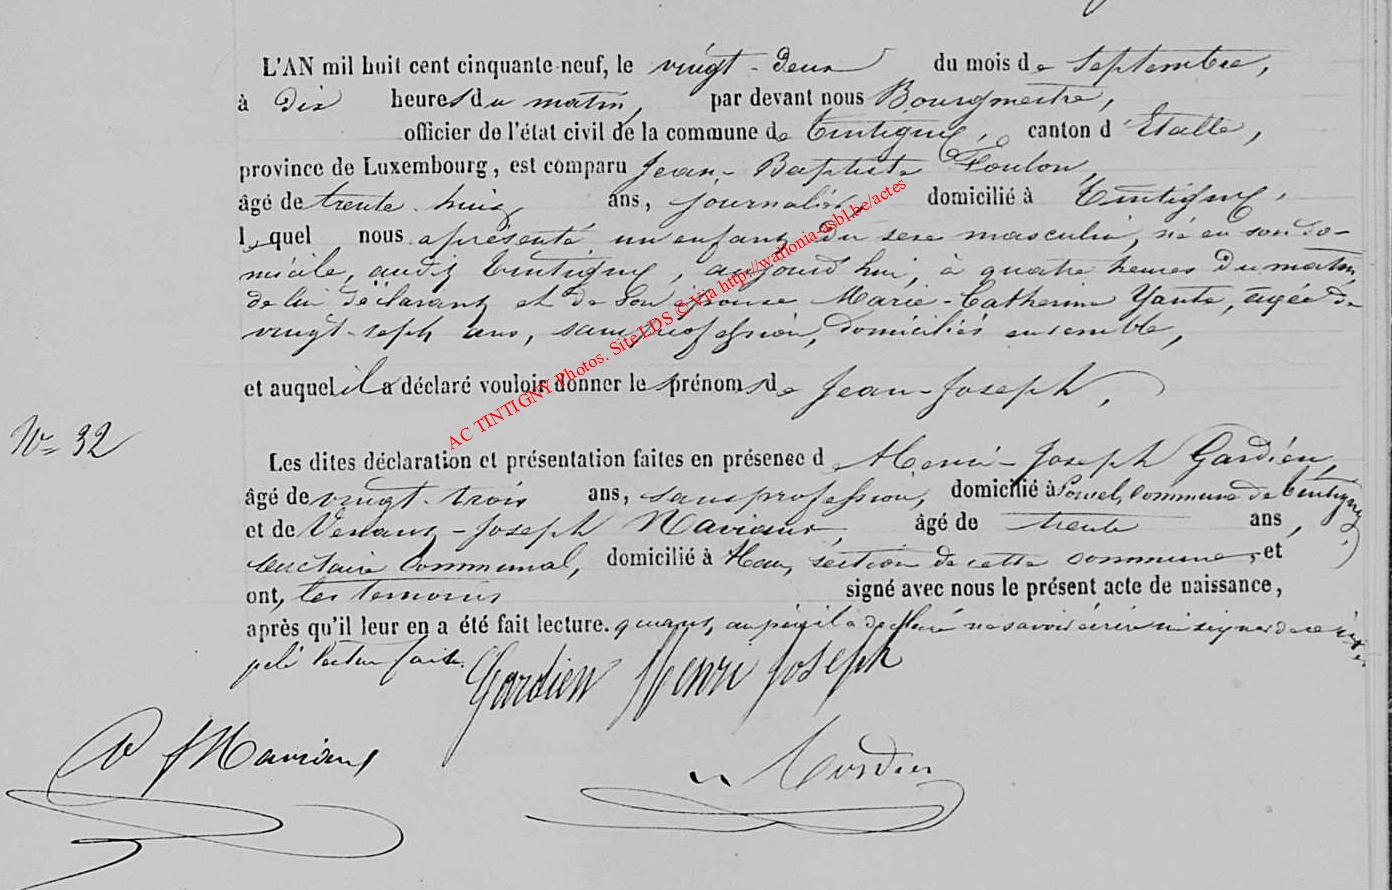 L'AN mil huit cent cinquante-neuf, le vingt-deux du mois de septembre,
à dix heures du matin, par devant nous Bourgmestre,
officier de l'état civil de la commune de Tintigny, canton d'Etalle,
province de Luxembourg, est comparu Jean-Baptiste Foulon,
âgé de trente huit ans, journalier, domicilié à Tintigny,
lequel nous a présenté un enfant du sexe masculin, né en son do-
micile, audit Tintigny, aujourd'hui, à quatre heures du matin,
de lui déclarant et de son épouse Marie-Catherine Yante, agée de
vingt-sept ans, sans profession, domiciliés ensemble,
et auquel il a déclaré vouloir donner les prénoms de Jean-Joseph,
N° 32
Les dites déclaration et présentation faites en présence de Henri-Joseph Gardien,
âgé de vingt-trois ans, sans profession, domicilié à commune de Tintigny
et de Venant-Joseph Maviaux, âgé de trente ans,
secrétaire communal, domicilié à Han, section de cette commune, et
ont, les témoins signé avec nous le présent acte de naissance,
après qu'il leur en a été fait lecture. quant, au père il a déclaré ne savoir écrire ni signer de ce
lecture faite.
Gardien Henri Joseph
AC TINTIGNY Photos. Site LDS © Via http://wallonia-asbl.be/actes